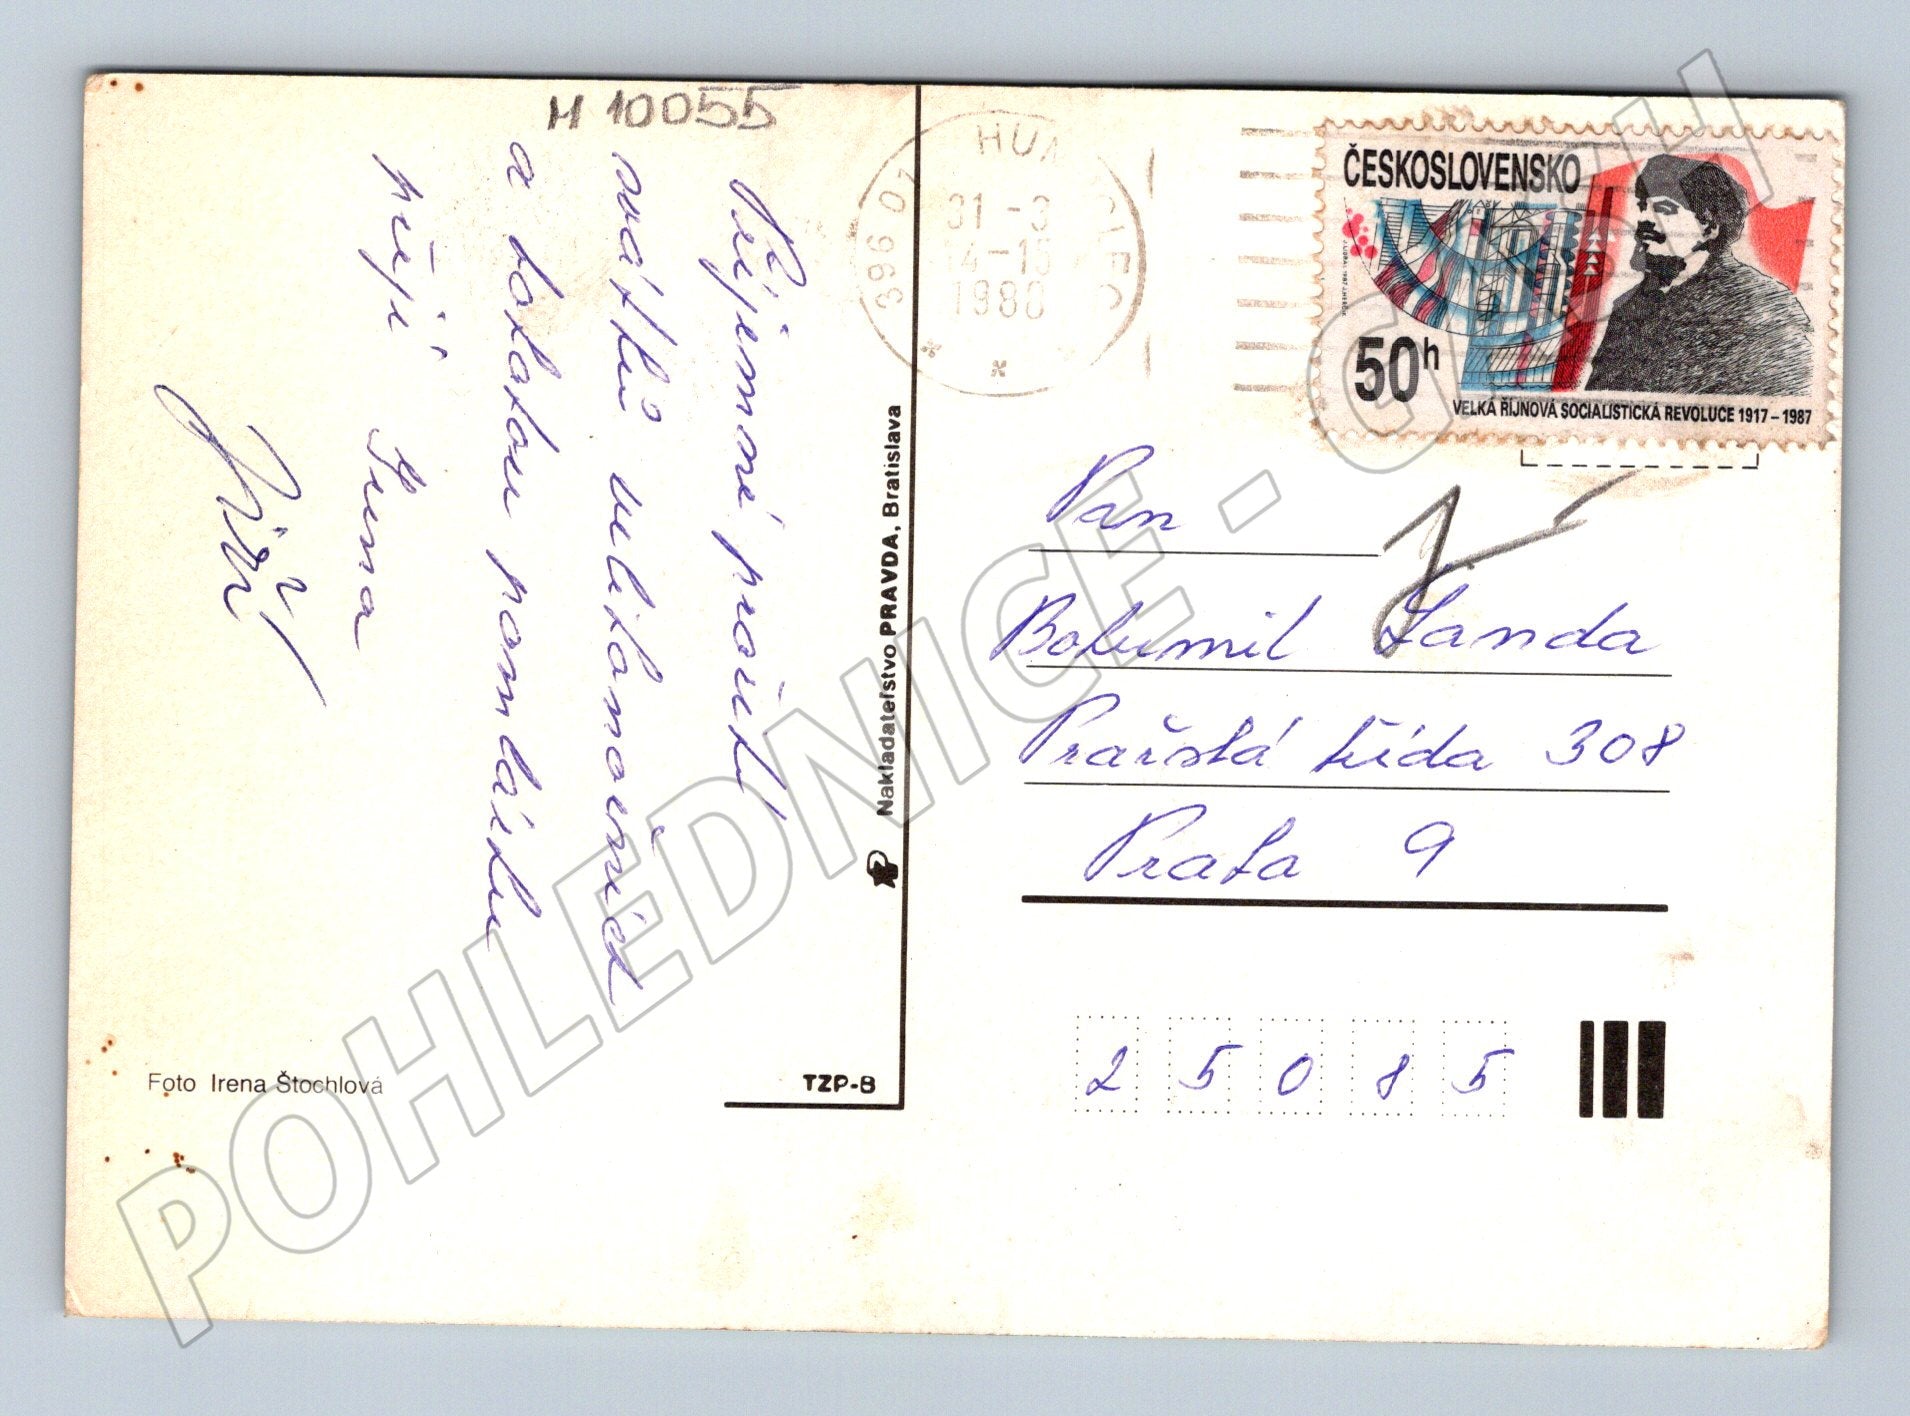 M 10055
Příjemné prožití
svátků velikonočních
a bohatou pomlázku
přeje
Jiří
Foto Irena Štochlová
TZP-8
Nakladateľstvo PRAVDA, Bratislava
396 01
HUM
POLEC
31-3
14-15
1988
ČESKOSLOVENSKO
50h
VELKÁ ŘÍJNOVÁ SOCIALISTICKÁ REVOLUCE 1917-1987
Pan
Bohumil Landa
Pražská třída 308
Praha 9
2 5 0 8 5
POHLEDNICE - CZ